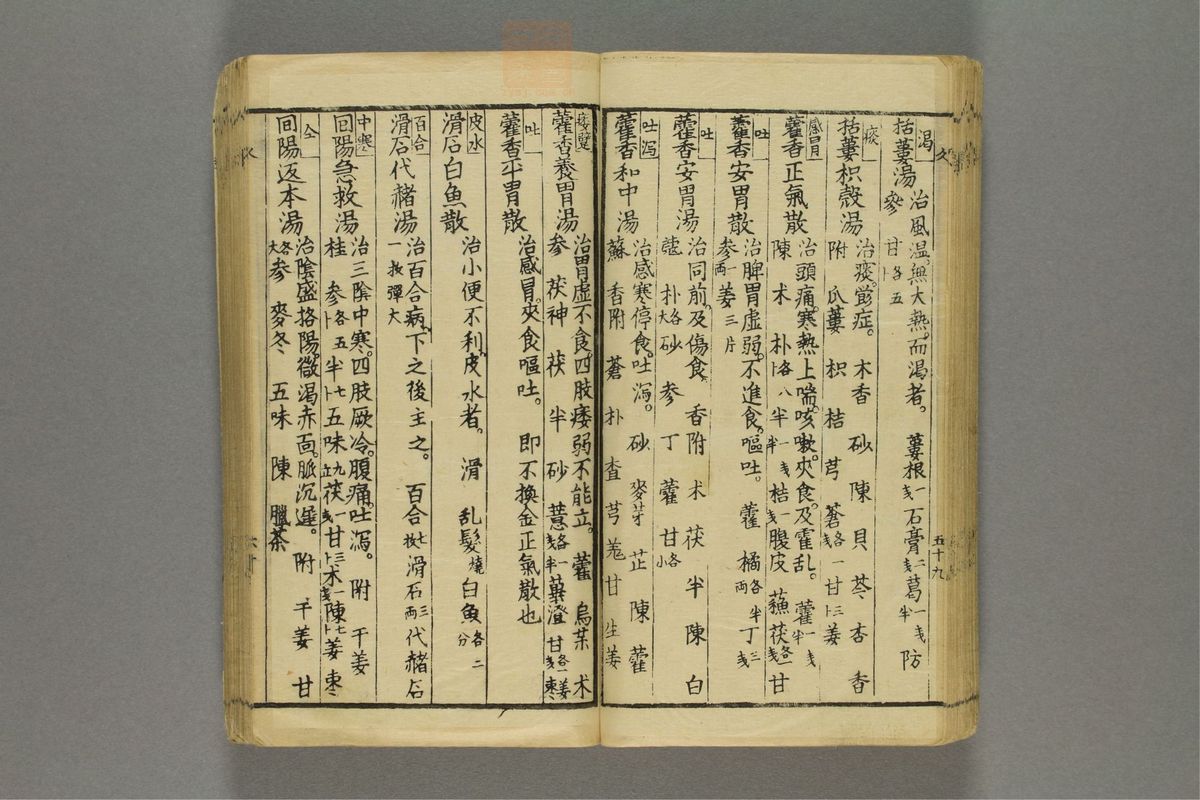 久
五十九
渴
栝蔞湯
治風温。無大熱。而渴者。 蔞根 石膏二 葛一半 防
參 甘各五
痰
栝蔞枳殼湯
治痰。鬱症。 木香 砂 陳 貝 芩 杏 香
附 瓜蔞 枳 桔 芎 蒼各一 甘三 姜
感冒
藿香正氣散
治頭痛。寒熱上喘。咳嗽。夾食。及霍乱。 藿一半
陳 术 朴各八 半一半 桔一 腹皮 蘓 茯各一 甘
吐
藿香安胃散
治脾胃虚弱。不進食。嘔吐。 藿 橘各半兩 丁三
參一兩 姜三片
吐
藿香安胃湯
治同前。及傷食。 香附 术 茯 半 陳 白
蔻 朴各大 砂 參 丁 藿 甘各小
吐瀉
藿香和中湯
治感寒停食。吐瀉。 砂 麥芽 芷 陳 藿
蘇 香附 蒼 朴 査 芎 羗 甘 生姜
痿躄
藿香養胃湯
治胃虚不食。四肢痿弱不能立。 藿 烏茱 术
參 茯神 茯 半 砂 薏各一半 蓽澄 甘各一 姜 棗
吐
藿香平胃散
治感冒。夾食嘔吐。 即不換金正氣散也
皮水
滑石白魚散
治小便不利。皮水者。 滑 乱髮燒 白魚各二分
百合
滑石代赭湯
治百合病。下之後主之。 百合七枚 滑石三兩 代赭石
一枚彈大
中寒
回陽急救湯
治三陰中寒。四肢厥冷。腹痛。吐瀉。 附 干姜
桂 參各五 半七 五味九 茯一 甘三 术一 陳七 姜 棗
仝
回陽返本湯
治陰盛挌陽。微渴赤面。脈沉遲。 附 干姜 甘
各大 參 麥冬 五味 陳 臘茶